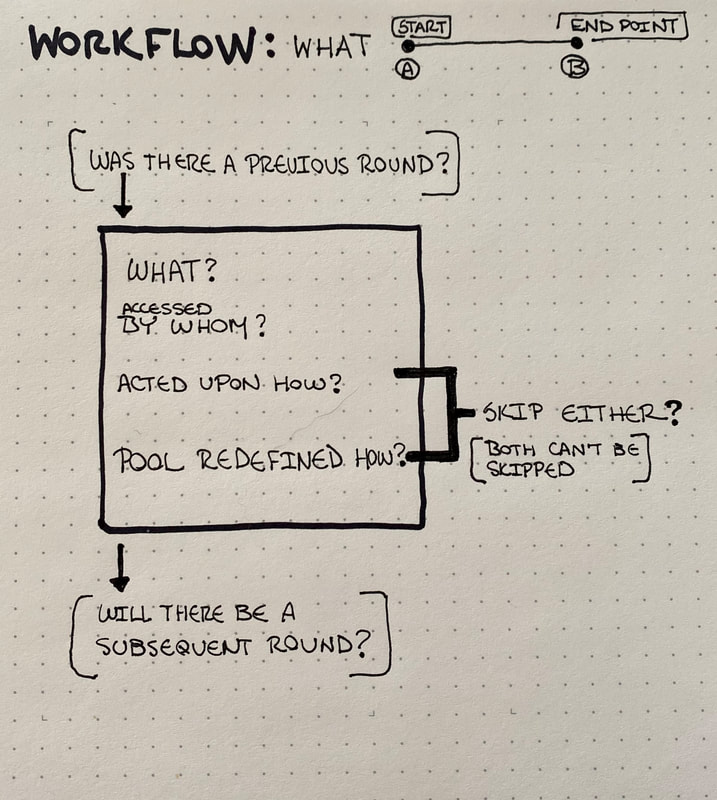 WORKFLOW: WHAT
START
END POINT
A
B
[WAS THERE A PREVIOUS ROUND?]
WHAT?
ACCESSED
BY WHOM?
ACTED UPON HOW?
SKIP EITHER?
POOL REDEFINED HOW?
[BOTH CAN'T BE
SKIPPED]
[WILL THERE BE A
SUBSEQUENT ROUND?]